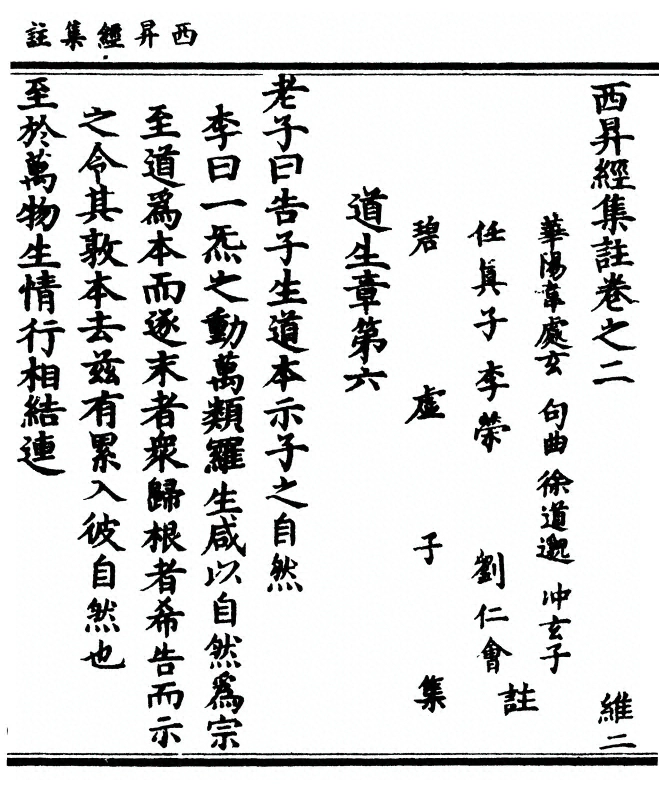 西昇經集註
西昇經集註卷之二
維二
華陽韋處玄 句曲徐道邈 冲玄子
任真子李榮 劉仁會 註
碧虛子 集
道生章第六
老子曰告子生道本示子之自然
李曰一炁之動萬類羅生咸以自然爲宗
至道爲本而逐末者衆歸根者希告而示
之令其敦本去兹有累入彼自然也
至於萬物生情行相結連